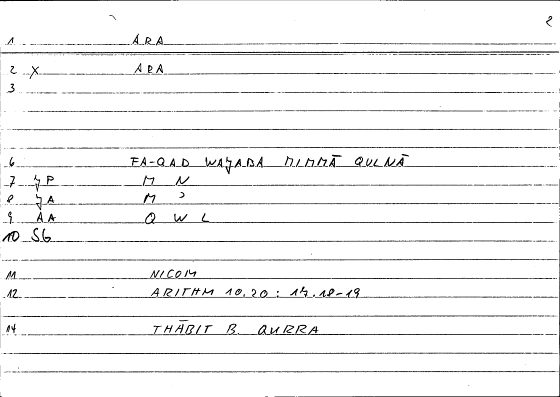 2
1 ARA
2 X ARA
3
6 FA-QAD WAJABA MIMMĀ QULNĀ
7 JP M N
8 JA M ʾ
9 AA Q W L
10 SG
11 NICOM
12 ARITHM 10.20 : 17.18-19
14 THĀBIT B. QURRA